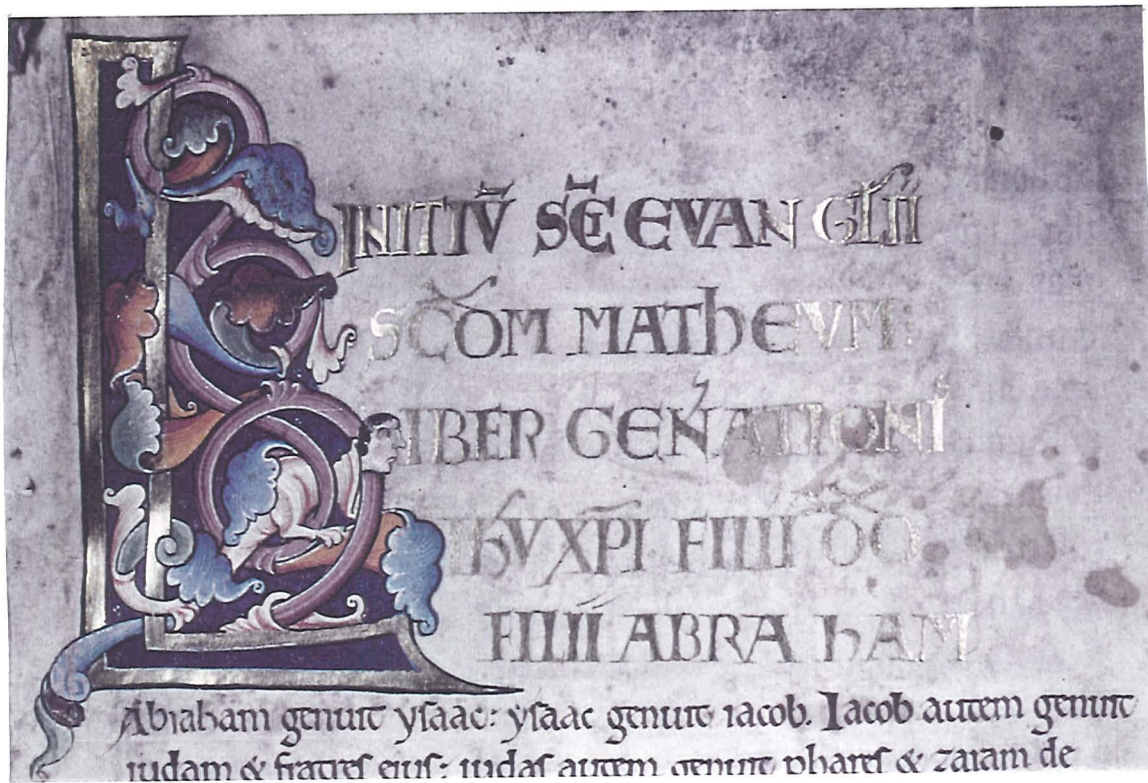 INITIV̄ SC̄I EVANGLII
SCDM MATHEVM:
LIBER GEN̾ATIONI
IHV XP̄I FILII DD
FILII ABRAHAM
Abraham genuit ysaac: ysaac genuit iacob. Iacob autem genuit
iudam & fratres eius: iudas autem genuit phares & zaram de